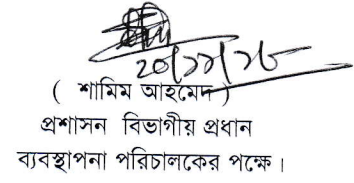 ২০/১১/১৮
( শামিম আহমেদ )
প্রশাসন বিভাগীয় প্রধান
ব্যবস্থাপনা পরিচালকের পক্ষে।